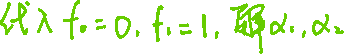 代入 f₀=0, f₁=1, 解α₁,α₂